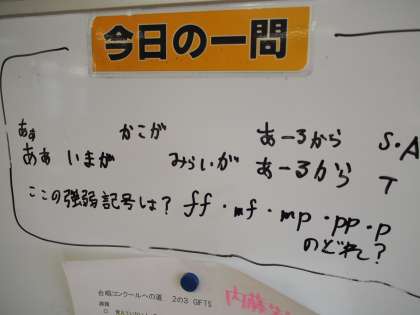 今日の一問
あぁ かこが あーろから S・A
あぁ いまが みらいが あーろから T
ここの強弱記号は? ff・mf・mp・pp・p
のどれ?
合唱コンクールへの道 2の3 GIFTS
内藤